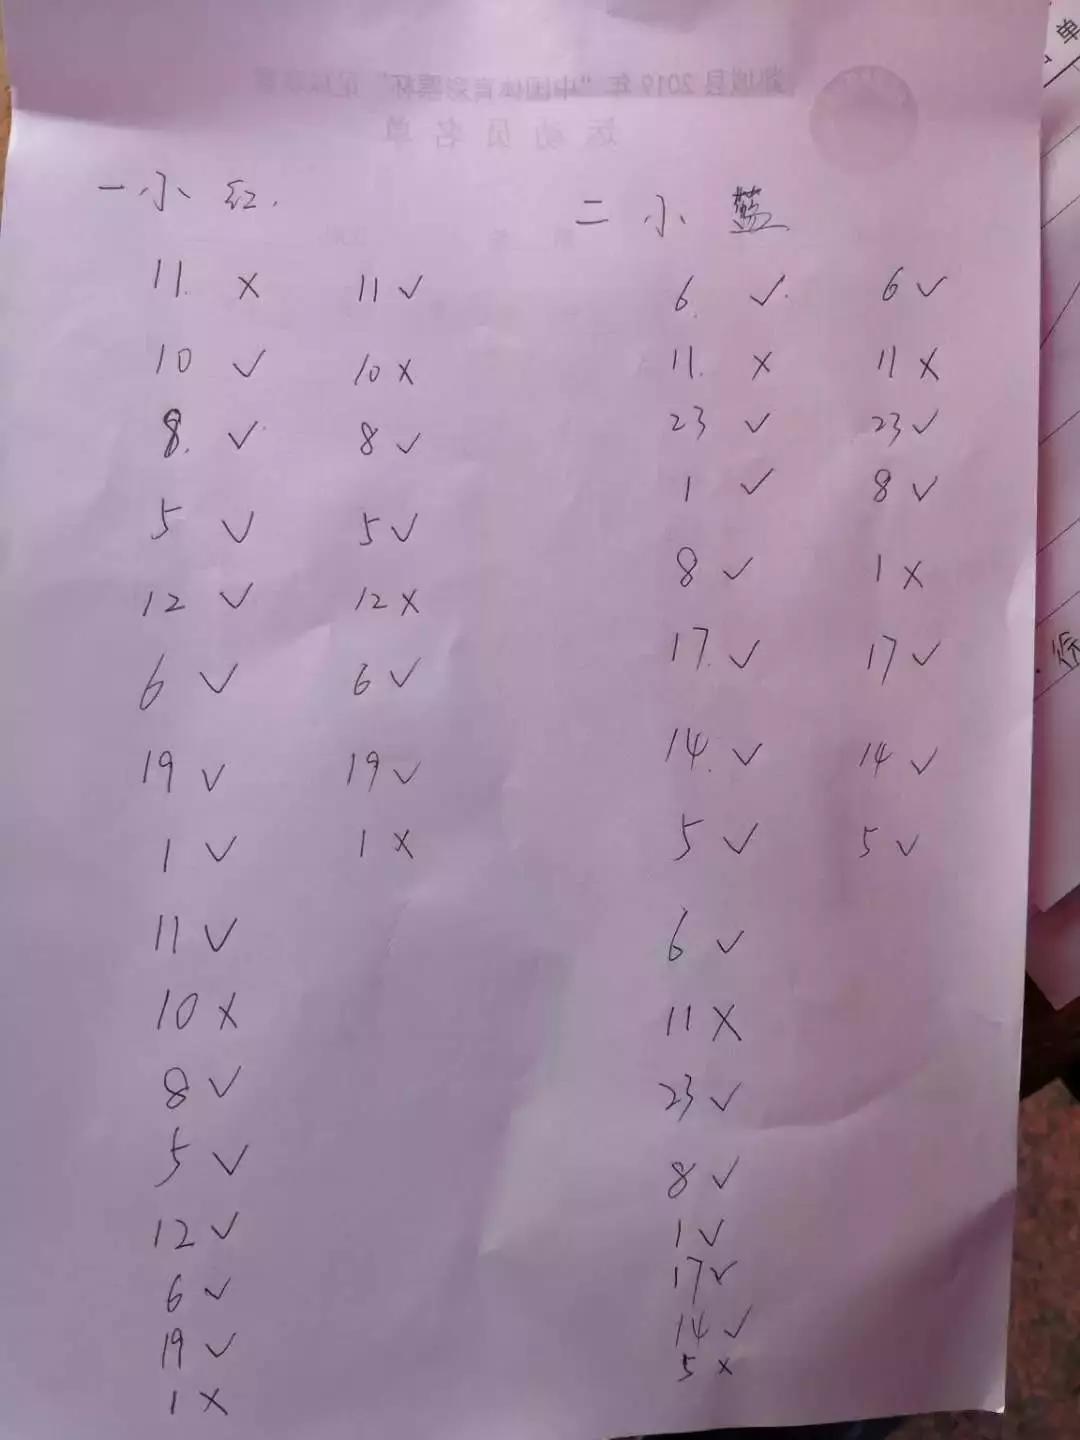 城县 2019 年“中国体育彩票杯”足球联赛
运动员名单
一小 红.
11. ×
10 ✓
8. ✓
5 ✓
12 ✓
6 ✓
19 ✓
1 ✓
11 ✓
10 ×
8 ✓
5 ✓
12 ✓
6 ✓
19 ✓
1 ×
11 ✓
10 ×
8 ✓
5 ✓
12 ×
6 ✓
19 ✓
1 ×
二 小 蓝
6. ✓
11. ×
23 ✓
1 ✓
8 ✓
17. ✓
14. ✓
5 ✓
6 ✓
11 ×
23 ✓
8 ✓
1 ✓
17 ✓
14 ✓
5 ×
6 ✓
11 ×
23 ✓
8 ✓
1 ×
17 ✓
14 ✓
5 ✓
单